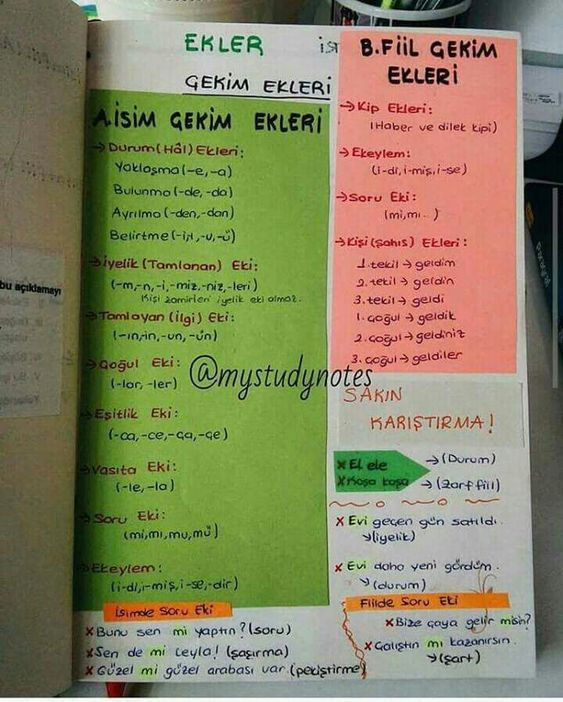 EKLER
ÇEKİM EKLERİ
A.İSİM ÇEKİM EKLERİ
→Durum(Hâl)Ekleri:
Yaklaşma(-e,-a)
Bulunma(-de,-da)
Ayrılma(-den,-dan)
Belirtme(-ı,-i,-u,-ü)
→İyelik (Tamlanan) Eki:
(-m,-n,-i,-miz,-niz,-leri)
Kişi zamirleri iyelik eki almaz.
→Tamlayan(ilgi) Eki:
(-ın,in,-un,-ün)
→Çoğul Eki:
(-lar,-ler)
→Eşitlik Eki:
(-ca,-ce,-ça,-çe)
→Vasıta Eki:
(-le,-la)
→Soru Eki:
(mi,mı,mu,mü)
→Ekeylem:
(i-di,i-miş,i-se,-dir)
İsimde Soru Eki
×Bunu sen mi yaptın?(soru)
×Sen de mi Leyla! (şaşırma)
×Güzel mi güzel arabası var.(pekiştirme)
B.FİİL ÇEKİM
EKLERİ
→Kip Ekleri:
(Haber ve dilek kipi)
→Ekeylem:
(i-di,i-miş,i-se)
→Soru Eki:
(mi,mı..)
→Kişi(şahıs) Ekleri:
1.tekil→geldim
2.tekil→geldin
3.tekil→geldi
1.çoğul→geldik
2.çoğul→geldiniz
3.çoğul→geldiler
@mystudynotes
SAKIN
KARIŞTIRMA!
×El ele →(Durum)
×Koşa koşa →(zarf fiil)
×Evi geçen gün satıldı.
→(iyelik)
×Evi daha yeni gördüm.
→(durum)
Fiilde Soru Eki
×Bize çaya gelir misin?
×Çalıştın mı kazanırsın.
→(şart)
bu açıklamayı